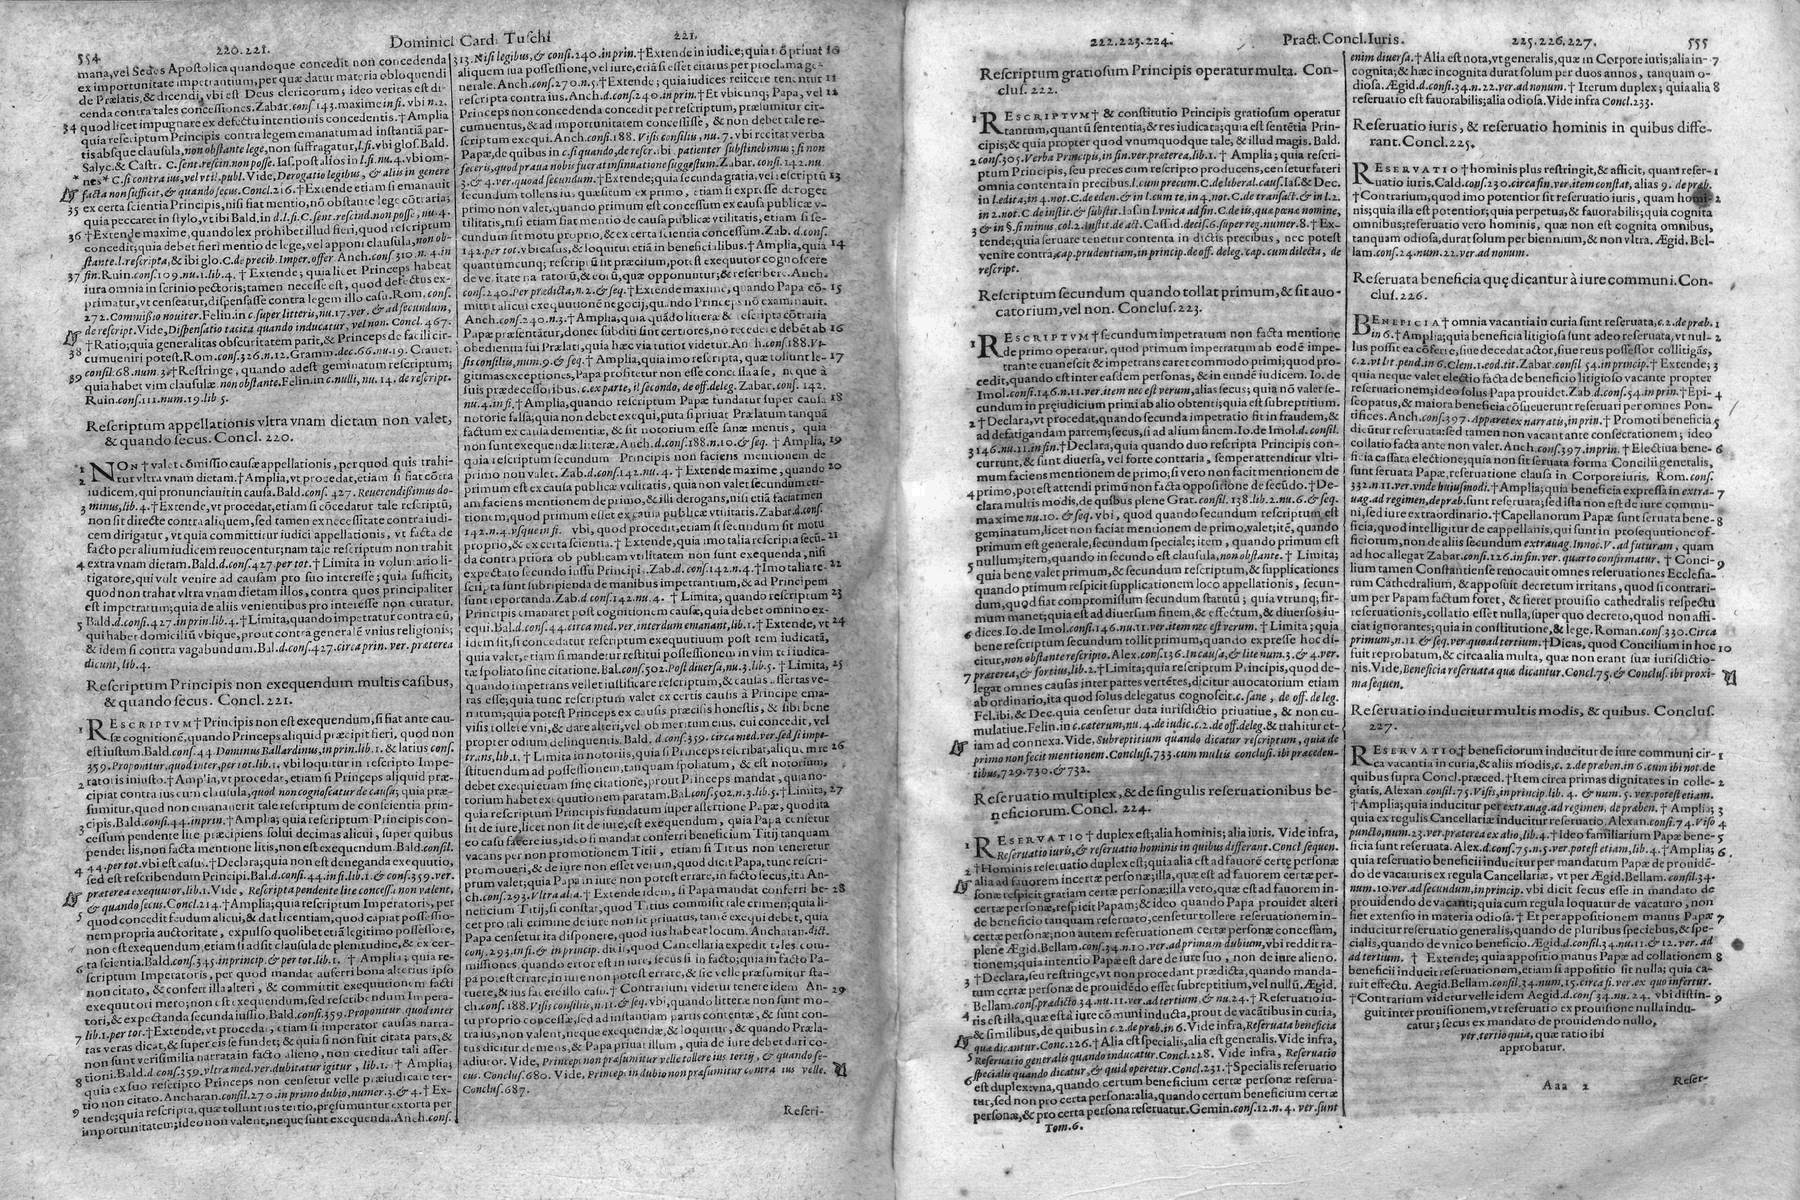 554
220.221.
Dominici Card. Tuschi
221.
mana, vel Sedes Apostolica quandoque concedit non concedenda
ex importunitate impetrantium, per quæ datur materia obloquendi
de Prælatis, & dicendi, vbi est Deus clericorum; ideo veritas est di-
cenda contra tales concessiones. Zabar. conf. 143. maxime in fi. vb n. 2.
34 quod licet impugnare ex defectu intentionis concedentis. † Amplia
quia rescriptum Principis contra legem emanatum ad instantiā par-
tis absque clausula, non obstante lege, non suffragatur, l. fi. vbi glos. Bald.
facta non sufficit, & quando secus. Concl. 216. † Extende etiam si emanauit
35 ex certa scientia Principis, nisi fiat mentio, nō obstāte lege cōtraria;
36 † Extende maxime, quando lex prohibet illud fieri, quod rescriptum
concedit; quia debet fieri mentio de lege, vel apponi clausula, non ob-
37 fin. Ruin. conf. 109. nu. 1. lib. 4. † Extende; quia licet Princeps habeat
iura omnia in scrinio pectoris; tamen necesse est, quod defectus ex-
primatur, vt censeatur, dispensasse contra legem illo casu. Rom. conf.
de rescript. Vide, Dispensatio tacita quando inducatur, vel non. Concl. 467.
† Ratio; quia generalitas obscuritatem parit, & Princeps de facili cir-
38 cumueniri potest. Rom. conf. 326. n. 12. Gramm. dec. 66. nu. 19. Crauet.
consil. 68. num. 3. † Restringe, quando adest geminatum rescriptum;
39 quia habet vim clausulæ non obstante. Felin. in c. nulli, nu. 14. de rescript.
Ruin. conf. 111. num. 19. lib. 5.
Rescriptum appellationis vltra vnam dietam non valet,
& quando secus. Concl. 220.
1 NON † valet cōmissio causæ appellationis, per quod quis trahi-
2 tur vltra vnam dietam. † Amplia, vt procedat, etiam si fiat cōtra
iudicem, qui pronunciauit in causa. Bald. conf. 427. Reuerendissimus do-
3 minus, lib. 4. † Extende, vt procedat, etiam si cōcedatur tale rescriptū,
non sit directe contra aliquem, sed tamen ex necessitate contra iudi-
cem dirigatur, vt quia committitur iudici appellationis, vt facta de
facto per alium iudicem reuocentur; nam tale rescriptum non trahit
4 extra vnam dietam. Bald. d. conf. 427. per tot. † Limita in voluntario li-
tigatore, qui vult venire ad causam pro suo interesse; quia sufficit,
quod non trahat vltra vnam dietam illos, contra quos principaliter
est impetratum; quia de aliis venientibus pro interesse non curatur.
5 Bald. d. conf. 427. in prin. lib. 4. † Limita, quando impetratur contra eū,
qui habet domiciliū vbique, prout contra generalē vnius religionis;
& idem si contra vagabundum. Bal. d. conf. 427. circa prin. ver. præterea
dicunt, lib. 4.
Rescriptum Principis non exequendum multis casibus,
& quando secus. Concl. 221.
1 RESCRIPTVM † Principis non est exequendum, si fiat ante cau-
sæ cognitionē, quando Princeps aliquid præcipit fieri, quod non
est iustum. Bald. conf. 44. Dominus Ballardinus, in prin. lib. 1. & latius conf.
359. Proponitur, quod inter, per tot. lib. 1. vbi loquitur in rescripto Impe-
2 ratoris iniusto. † Amplia, vt procedat, etiam si Princeps aliquid præ-
cipiat contra ius cum clausula, quod non cognoscatur de causa; quia præ-
sumitur, quod non emanauerit tale rescriptum de conscientia prin-
3 cipis. Bald. conf. 44. in prin. † Amplia; quia rescriptum Principis con-
cessum pendente lite præcipiens solui decimas alicui, super quibus
pendet lis, non facta mentione litis, non est exequendum. Bald. consil.
4 44. per tot. vbi est casus. † Declara; quia non est deneganda exequutio,
sed est rescribendum Principi. Bal. d. conf. 44. in fi. lib. 1. & conf. 359. ver.
præterea exequutor, lib. 1. Vide, Rescripta pendente lite concessa, non valent,
& quando secus. Concl. 214. † Amplia; quia rescriptum Imperatoris, per
5 quod concedit feudum alicui, & dat licentiam, quod capiat possessio-
nem propria auctoritate, expulso quolibet etiā legitimo possessore,
non est exequendum, etiam si adsit clausula de plenitudine, & ex cer-
ta scientia. Bal. conf. 345. in princip. & per tot. lib. 1. † Amplia; quia re-
6 scriptum Imperatoris, per quod mandat auferri bona alterius ipso
non citato, & conferri illa alteri, & committit exequutionem facti
exequutori mero; non est exequendum, sed rescribendum Impera-
tori, & expectanda secunda iussio. Bald. conf. 359. Proponitur quod inter
7 lib. 1. per tot. † Extende, vt procedat, etiam si imperator causas narra-
tas veras dicat, & super eis se fundet; & quia si non fuit citata pars, &
non sunt verissimilia narrata in facto alieno, non creditur tali asser-
tioni. Bald. d. conf. 359. vltra med. ver. dubitatur igitur, lib. 1. † Amplia;
8 quia ex suo rescripto Princeps non censetur velle præiudicare ter-
tio non citato. Ancharan. consil. 270. in primo dubio, numer. 3. & 4. † Ex-
9 tende; quia rescripta, quæ tollunt ius tertio, præsumuntur extorta per
importunitatem; ideo non valent, neque sunt exequenda. Anch. conf.
313. Nisi legibus, & consi. 240. in prin. † Extende in iudice; quia nō priuat 10
aliquem sua possessione, vel iure, etiā si esset citatus per proclama ge-
nerale. Anch. conf. 270. n. 5. † Extende; quia iudices reiicere tenentur 11
rescripta contra ius. Anch. d. conf. 240. in prin. † Et vbicunq; Papa, vel 12
Princeps non concedenda concedit per rescriptum, præsumitur cir-
cumuentus, & ad importunitatem concessisse, & non debet tale re-
scriptum exequi. Anch. consi. 188. Visis consiliis, nu. 7. vbi recitat verba
Papæ, de quibus in c. si quando, de rescr. ibi patienter sustinebimus; si non
feceris, quod praua nobis fuerat insinuatione suggestum. Zabar. conf. 142. nu.
3. & 4. ver. quo ad secundum. † Extende; quia secunda gratia, vel rescriptū 13
secundum tollens ius quæsitum ex primo, etiam si expresse deroget
primo non valet, quando primum est concessum ex causa publicæ v-
tilitatis, nisi etiam fiat mentio de causa publicæ vtilitatis, etiam si se-
cundum sit motu proprio, & ex certa scientia concessum. Zab. d. conf.
142. per tot. vbi casus, & loquitur etiā in beneficialibus. † Amplia, quia 14
quantumcunq; rescriptū sit præcisum, potest exequutor cognoscere
de veritate narratorū, & eorū, quæ opponuntur; & rescribere. Anch.
conf. 240. Per prædicta, n. 2. & seq. † Extende maxime, quando Papa cō- 15
mittit alicui exequutionē negocij, quando Princeps nō examinauit.
Anch. conf. 240. n. 3. † Amplia, quia quādo litteræ & rescripta cōtraria
Papæ præsentātur, donec subditi sint certiores, no recedere debēt ab 16
obedientia sui Prælati, quia hæc via tutior videtur. Anch. conf. 188. Vi-
sis consiliis, num. 9. & seq. † Amplia, quia imo rescripta, quæ tollunt le- 17
gitimas exceptiones, Papa profitetur non esse concessa a se, neque à
suis prædecessoribus. c. ex parte, il secondo, de off. deleg. Zabar. conf. 142.
nu. 4. in fi. † Amplia, quando rescriptum Papæ fundatur super causa 18
notorie falsa; quia non debet exequi, puta si priuat Prælatum tanquā
factum ex causa dementiæ, & sit notorium esse sanæ mentis, quia
non sunt exequendæ litteræ. Anch. d. conf. 188. n. 10. & seq. † Amplia, 19
quia rescriptum secundum Principis non faciens mentionem de
primo non valet. Zab. d. conf. 142. nu. 4. † Extende maxime, quando 20
primum est ex causa publicæ vtilitatis, quia non valet secundum et-
iam faciens mentionem de primo, & illi derogans, nisi etiā faciat men
tionem, quod primum esset ex causa publicæ vtilitatis. Zabar. d. conf.
142. n. 4. vsque in fi. vbi, quod procedit, etiam si secundum sit motu
proprio, & ex certa scientia. † Extende, quia imo talia rescripta secū- 21
dum contra priora ob publicam vtilitatem non sunt exequenda, nisi
expectato secundo iussu Principi. Zab. d. conf. 142. n. 4. † Imo talia re- 22
scripta sunt subripienda de manibus impetrantium, & ad Principem
sunt reportanda. Zab. d. conf. 142. nu. 4. † Limita, quando rescriptum 23
Principis emanaret post cognitionem causæ, quia debet omnino ex-
equi. Bal. d. conf. 44. circa med. ver. interdum emanant, lib. 1. † Extende, vt 24
idem sit, si concedatur rescriptum exequutiuum post rem iudicatā,
quia valet, etiam si mandetur restitui possessionem in vim rei iudica-
tæ spoliato sine citatione. Bal. conf. 502. Post diuersa, nu. 3. lib. 5. † Limita, 25
quando impetrans vellet iustificare rescriptum, & causas assertas ve-
ras esse; quia tunc rescriptum valet ex certis causis à Principe ema-
natum; quia potest Princeps ex causis præcisis honestis, & sibi bene
visis tollere vni, & dare alteri, vel ob meritum eius, cui concedit, vel
propter odium delinquentis. Bald. d. conf. 359. circa med. ver. sed si impe-
trans, lib. 1. † Limita in notoriis, quia si Princeps rescribat, aliquem re 26
stituendum ad possessionem, tanquam spoliatum, & est notorium,
debet exequi etiam sine citatione, prout Princeps mandat, quia no-
torium habet exequutionem paratam. Bal. conf. 502. n. 3. lib. 5. † Limita, 27
quando rescriptum Principis fundatur super assertione Papæ, quod ita
sit de iure, licet non sit de iure, est exequendum, quia Papa censetur
eo casu facere ius, ideo si mandat conferri beneficium Titij tanquam
vacans per non promotionem Titii, etiam si Titius non teneretur
promoueri, & de iure non esset verum, quod dicit Papa, tunc rescri-
prum valet; quia Papa in iure non potest errare, in facto secus, ita An-
ch. conf. 293. Vltra alia. † Extende idem, si Papa mandat conferri be- 28
neficium Titij, si constat, quod Titius commisit tale crimen; quia li-
cet pro tali crimine de iure non sit priuatus, tamē exequi debet, quia
Papa censetur ita disponere, quod ius habeat locum. Ancharan. dict.
conf. 293. in fi. & in princip. dixi, quod Cancellaria expedit tales com-
missiones quando error est in iure, secus si in facto; quia in facto Pa-
pa potest errare, in iure non potest errare, & sic velle præsumitur sta-
tuere, & ius facere illo casu. † Contrarium videtur tenere idem An- 29
ch. conf. 188. Visis consiliis, n. 11. & seq. vbi, quando litteræ non sunt mo-
tu proprio concessæ, sed ad instantiam partis contentæ, & sunt con-
tra ius, non valent, neque exequendæ, & loquitur, & quando Præla-
tus dicitur demens, & Papa priuat illum, quia de iure debet dari co-
adiutor. Vide, Princeps non præsumitur velle tollere ius tertij, & quando se-
cus. Conclus. 680. Vide, Princeps in dubio non præsumitur contra ius velle.
Conclus. 687.
Rescri-
222.223.224.
Pract. Concl. Iuris.
225.226.227.
555
Rescriptum gratiosum Principis operatur multa. Con-
clus. 222.
1 RESCRIPTVM † & constitutio Principis gratiosum operatur
tantum, quantū sententia, & res iudicata; quia est sentētia Prin-
cipis; & quia propter quod vnumquodque tale, & illud magis. Bald.
2 conf. 305. Verba Principis, in fin. ver. præterea, lib. 1. † Amplia; quia rescri-
ptum Principis, seu preces cum rescripto producens, censetur fateri
omnia contenta in precibus, l. cum precum. C. de liberal. caus. Ias. & Dec.
in l. edita, in 4. not. C. de eden. & in l. cum te, in 4. not. C. de transact. & in l. 2.
in 2. not. C. de instit. & substit. Ias. in l. vnica ad fin. C. de iis, quæ pœnæ nomine,
3 & in §. si minus, col. 2. Instit. de act. Cassad. decis. 6. super reg. numer. 8. † Ex-
tende; quia seruare tenetur contenta in dictis precibus, nec potest
venire contra, cap. prudentiam, in princip. de off. deleg. cap. cum dilecta, de
rescript.
Rescriptum secundum quando tollat primum, & sit auo-
catorium, vel non. Conclus. 223.
1 RESCRIPTVM † secundum impetratum non facta mentione
de primo operatur, quod primum impetratum ab eodē impe-
trante euanescit & impetrans caret commodo primi; quod pro-
cedit, quando est inter easdem personas, & in eundē iudicem. Io. de
Imol. conf. 146. n. 11. ver. item nec est verum, alias secus; quia nō valet se-
cundum in præiudicium primi ab alio obtenti; quia est subreptitium.
2 † Declara, vt procedat, quando secunda impetratio fit in fraudem, &
ad defatigandam partem; secus, si ad alium finem. Io. de Imol. d. consil.
3 146. nu. 11. in fin. † Declara, quia quando duo rescripta Principis con-
currunt, & sunt diuersa, vel forte contraria, semper attenditur vlti-
mum faciens mentionem de primo; si vero non facit mentionem de
4 primo, potest attendi primū non facta oppositione de secūdo. † De-
clara multis modis, de quibus plene Grat. consil. 138. lib. 2. nu. 6. & seq.
maxime nu. 10. & seq. vbi, quod quando secundum rescriptum est
geminatum, licet non faciat mentionem de primo, valet; itē, quando
primum est generale, secundum speciale; item, quando primum est
nullum; item, quando in secundo est clausula, non obstante. † Limita;
5 quia bene valet primum, & secundum rescriptum, & supplicationes
quando primum respicit supplicationem loco appellationis, secun-
dum, quod fiat compromissum secundum statutū; quia vtrunq; fir-
mum manet; quia est ad diuersum finem, & effectum, & diuersos iu-
6 dices. Io. de Imol. conf. 146. nu. 11. ver. item nec est verum. † Limita; quia
bene rescriptum secundum tollit primum, quando expresse hoc di-
citur, non obstante rescripto. Alex. conf. 136. In causa, & lite num. 3. & 4. ver.
7 præterea, & fortius, lib. 2. † Limita; quia rescriptum Principis, quod de-
legat omnes causas inter partes vertētes, dicitur auocatorium etiam
ab ordinario, ita quod solus delegatus cognoscit. c. sane, de off. deleg.
Fel. ibi, & Dec. quia censetur data iurisdictio priuatiue, & non cu-
mulatiue. Felin. in c. cæterum, nu. 4. de iudic. c. 2. de off. deleg. & trahitur et-
iam ad connexa. Vide, Subreptitium quando dicatur rescriptum, quia de
primo non fecit mentionem. Conclus. 733. cum multis conclusi. ibi præceden-
tibus, 729. 730. & 732.
Reseruatio multiplex, & de singulis reseruationibus be-
neficiorum. Concl. 224.
1 RESERVATIO † duplex est; alia hominis; alia iuris. Vide infra,
Reseruatio iuris, & reseruatio hominis in quibus differant. Concl. sequen.
2 † Hominis reseruatio duplex est; quia alia est ad fauorē certæ personæ
alia ad fauorem incertæ personæ; illa, quæ est ad fauorem certæ per-
sonæ respicit gratiam certæ personæ; illa vero, quæ est ad fauorem in-
certæ personæ, respicit Papam; & ideo quando Papa prouidet alteri
de beneficio tanquam reseruato, censetur tollere reseruationem in-
certæ personæ; non autem reseruationem certæ personæ concessam,
plene Ægid. Bellam. conf. 34. n. 10. ver. ad primum dubium, vbi reddit ra-
tionem; quia intentio Papæ est dare de iure suo, non de iure alieno.
3 † Declara, seu restringe, vt non procedant prædicta, quando manda-
tum certæ personæ de prouidēdo esset subreptitium, vel nullū. Ægid.
Bellam. conf. prædicto 34. nu. 11. ver. ad tertium, & nu. 24. † Reseruatio iu-
4 ris est illa, quæ est à iure cōmuni inducta, prout de vacātibus in curia,
& similibus, de quibus in c. 2. de præb. in 6. Vide infra, Reseruata beneficia
quæ dicantur. Conc. 226. † Alia est specialis, alia est generalis. Vide infra,
5 Reseruatio generalis quando inducatur. Concl. 228. Vide infra, Reseruatio
specialis quando dicatur, & quid operetur. Concl. 231. † Specialis reseruatio
6 est duplex; vna, quando certum beneficium certæ personæ reserua-
tur, sed non pro certa persona; alia, quando certum beneficium certæ
personæ, & pro certa persona reseruatur. Gemin. conf. 12. n. 4. ver. sunt
Tom. 6.
enim diuersa. † Alia est nota, vt generalis, quæ in Corpore iuris; alia in- 7
cognita; & hæc incognita durat solum per duos annos, tanquam o-
diosa. Ægid. d. conf. 34. n. 22. ver. ad nonum. † Iterum duplex; quia alia 8
reseruatio est fauorabilis; alia odiosa. Vide infra Concl. 233.
Reseruatio iuris, & reseruatio hominis in quibus diffe-
rant. Concl. 225.
RESERVATIO † hominis plus restringit, & afficit, quam reser- 1
uatio iuris. Cald. conf. 230. circa fin. ver. item constat, alias 9. de præb.
† Contrarium, quod imo potentior sit reseruatio iuris, quam homi- 2
nis; quia illa est potentior; quia perpetua, & fauorabilis; quia cognita
omnibus; reseruatio vero hominis, quæ non est cognita omnibus,
tanquam odiosa, durat solum per biennium, & non vltra. Ægid. Bel-
lam. conf. 24. num. 22. ver. ad nonum.
Reseruata beneficia quę dicantur à iure communi. Con-
clus. 226.
BENEFICIA † omnia vacantia in curia sunt reseruata, c. 2. de præb. 1
in 6. † Amplia; quia beneficia litigiosa sunt adeo reseruata, vt nul- 2
lus possit ea cōferre, siue decedat actor, siue reus possessor collitigās,
c. 2. vt lit. pend. in 6. Clem. 1. eod. tit. Zabar. consil. 54. in princip. † Extende; 3
quia neque valet electio facta de beneficio litigioso vacante propter
reseruationem; ideo solus Papa prouidet. Zab. d. conf. 54. in prin. † Epi- 4
scopatus, & maiora beneficia cōsueuerunt reseruari per omnes Pon-
tifices. Anch. conf. 397. Apparet ex narratis, in prin. † Promoti beneficia 5
dicūtur reseruata; sed tamen non vacant ante consecrationem; ideo
collatio facta ante non valet. Anch. conf. 397. in prin. † Electiua bene- 6
ficia cassata electione; quia non sit seruata forma Concilii generalis,
sunt seruata Papæ, reseruatione clausa in Corpore iuris. Rom. conf.
332. n. 11. ver. vnde huiusmodi. † Amplia; quia beneficia expressa in extra- 7
uag. ad regimen, de præb. sunt reseruata; sed ista non est de iure commu-
ni, sed iure extraordinario. † Capellanorum Papæ sunt seruata bene- 8
ficia, quod intelligitur de cappellanis, qui sunt in prosequutione of-
ficiorum, non de aliis secundum extrauag. Innoc. V. ad futuram, quam
ad hoc allegat Zabar. conf. 126. in fin. ver. quarto confirmatur. † Conci- 9
lium tamen Constantiense reuocauit omnes reseruationes Ecclesia-
rum Cathedralium, & apposuit decretum irritans, quod si contrari-
um per Papam factum foret, & fieret prouisio cathedralis respectu
reseruationis, collatio esset nulla, super quo decreto, quod non affi-
ciat ignorantes; quia in constitutione, & lege. Roman. conf. 330. Circa
primum, n. 11. & seq. ver. quod tertium. † Dicas, quod Concilium in hoc 10
fuit reprobatum, & circa alia multa, quæ non erant suæ iurisdictio-
nis. Vide, Beneficia reseruata quæ dicantur. Concl. 75. & Conclus. ibi proxi-
ma sequen.
Reseruatio inducitur multis modis, & quibus. Conclus.
227.
RESERVATIO † beneficiorum inducitur de iure communi cir- 1
ca vacantia in curia, & aliis modis, c. 2. de præben. in 6. cum ibi not. de
quibus supra Concl. præced. † Item circa primas dignitates in colle- 2
giatis, Alexan. consil. 75. Visis, in princip. lib. 4. & num. 5. ver. potest etiam.
† Amplia; quia inducitur per extrauag. ad regimen, de præben. † Amplia; 3
quia ex regulis Cancellariæ inducitur reseruatio. Alexan. conf. 74. Viso 4
puncto, num. 23. ver. præterea ex alio, lib. 4. † Ideo familiarium Papæ bene- 5
ficia sunt reseruata. Alex. d. conf. 75. n. 5. ver. potest etiam, lib. 4. † Amplia; 6
quia reseruatio beneficii inducitur per mandatum Papæ de prouidē-
do de vacaturis ex regula Cancellariæ, vt per Ægid. Bellam. consil. 34.
num. 10. ver. ad secundum, in princip. vbi dicit secus esse in mandato de
prouidendo de vacanti; quia cum regula loquatur de vacaturo, non
fiet extensio in materia odiosa. † Et per appositionem manus Papæ 7
inducitur reseruatio generalis, quando de pluribus speciebus, & spe-
cialis, quando de vnico beneficio. Ægid. d. consil. 34. nu. 11. & 12. ver. ad
ad tertium. † Extende; quia appositio manus Papæ ad collationem 8
beneficii inducit reseruationem, etiam si appositio sit nulla; quia ca-
ruit effectu. Ægid. Bellam. consil. 34. num. 15. circa fi. ver. ex quo infertur.
† Contrarium videtur velle idem Aegid. d. conf. 34. nu. 24. vbi distin- 9
guit inter prouisionem, vt reseruatio ex prouisione nulla indu-
catur; secus ex mandato de prouidendo nullo,
ver. tertio quia, quæ ratio ibi
approbatur.
Aaa 2
Reser-